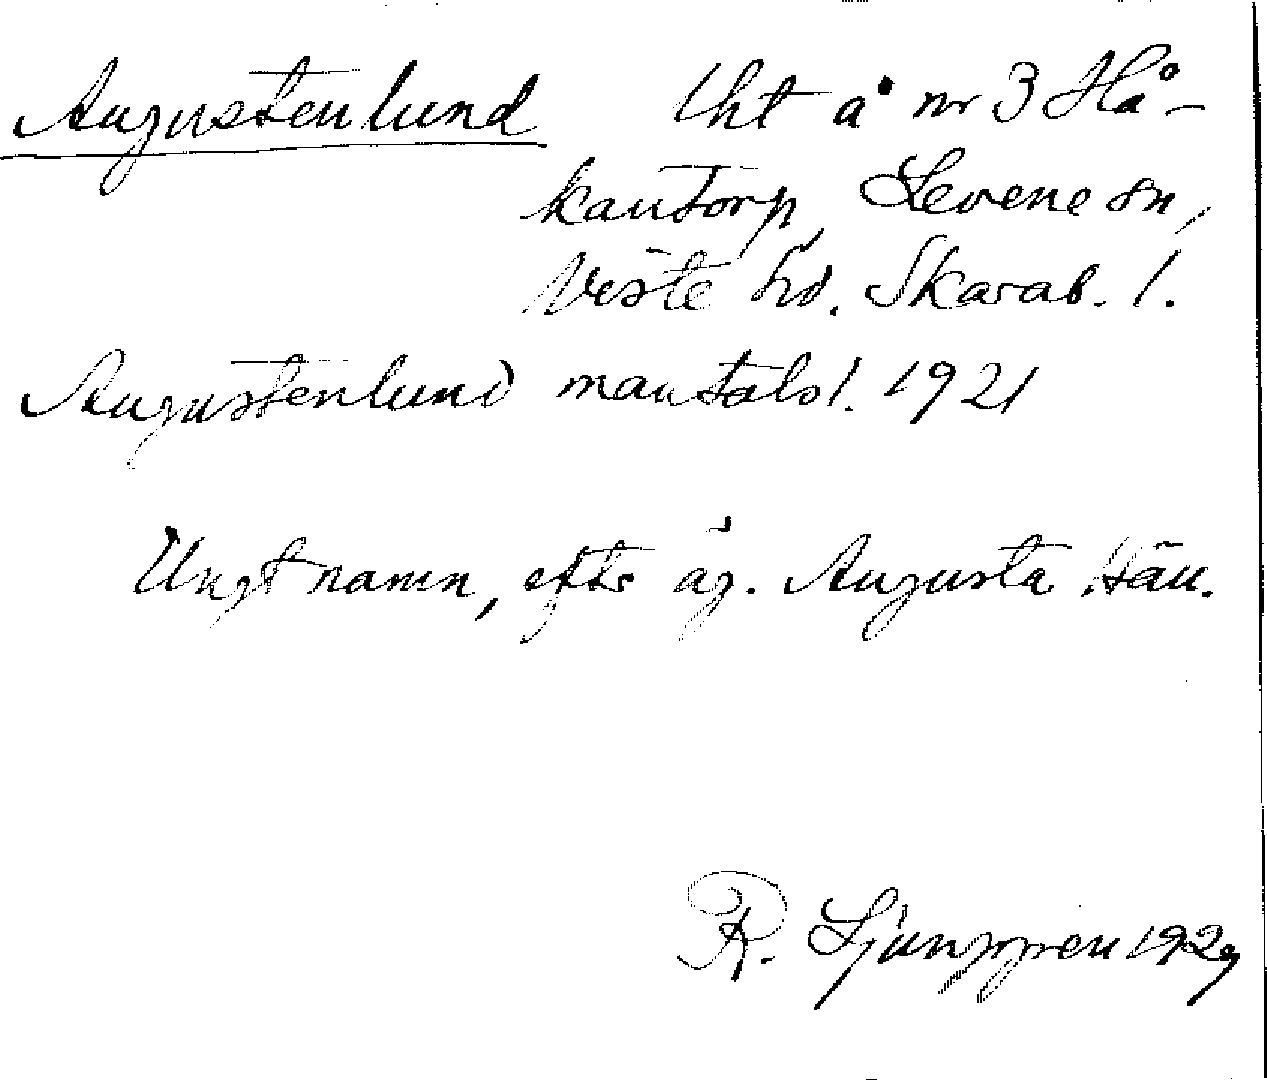 Augustenlund lht å nr 3 Hå-
kantorp, Levene sn,
Viste hd. Skarab. l.
Augustenlund mantalsl. 1921
Ungt namn, efter äg. Augusta
R. Ljunggren 1929